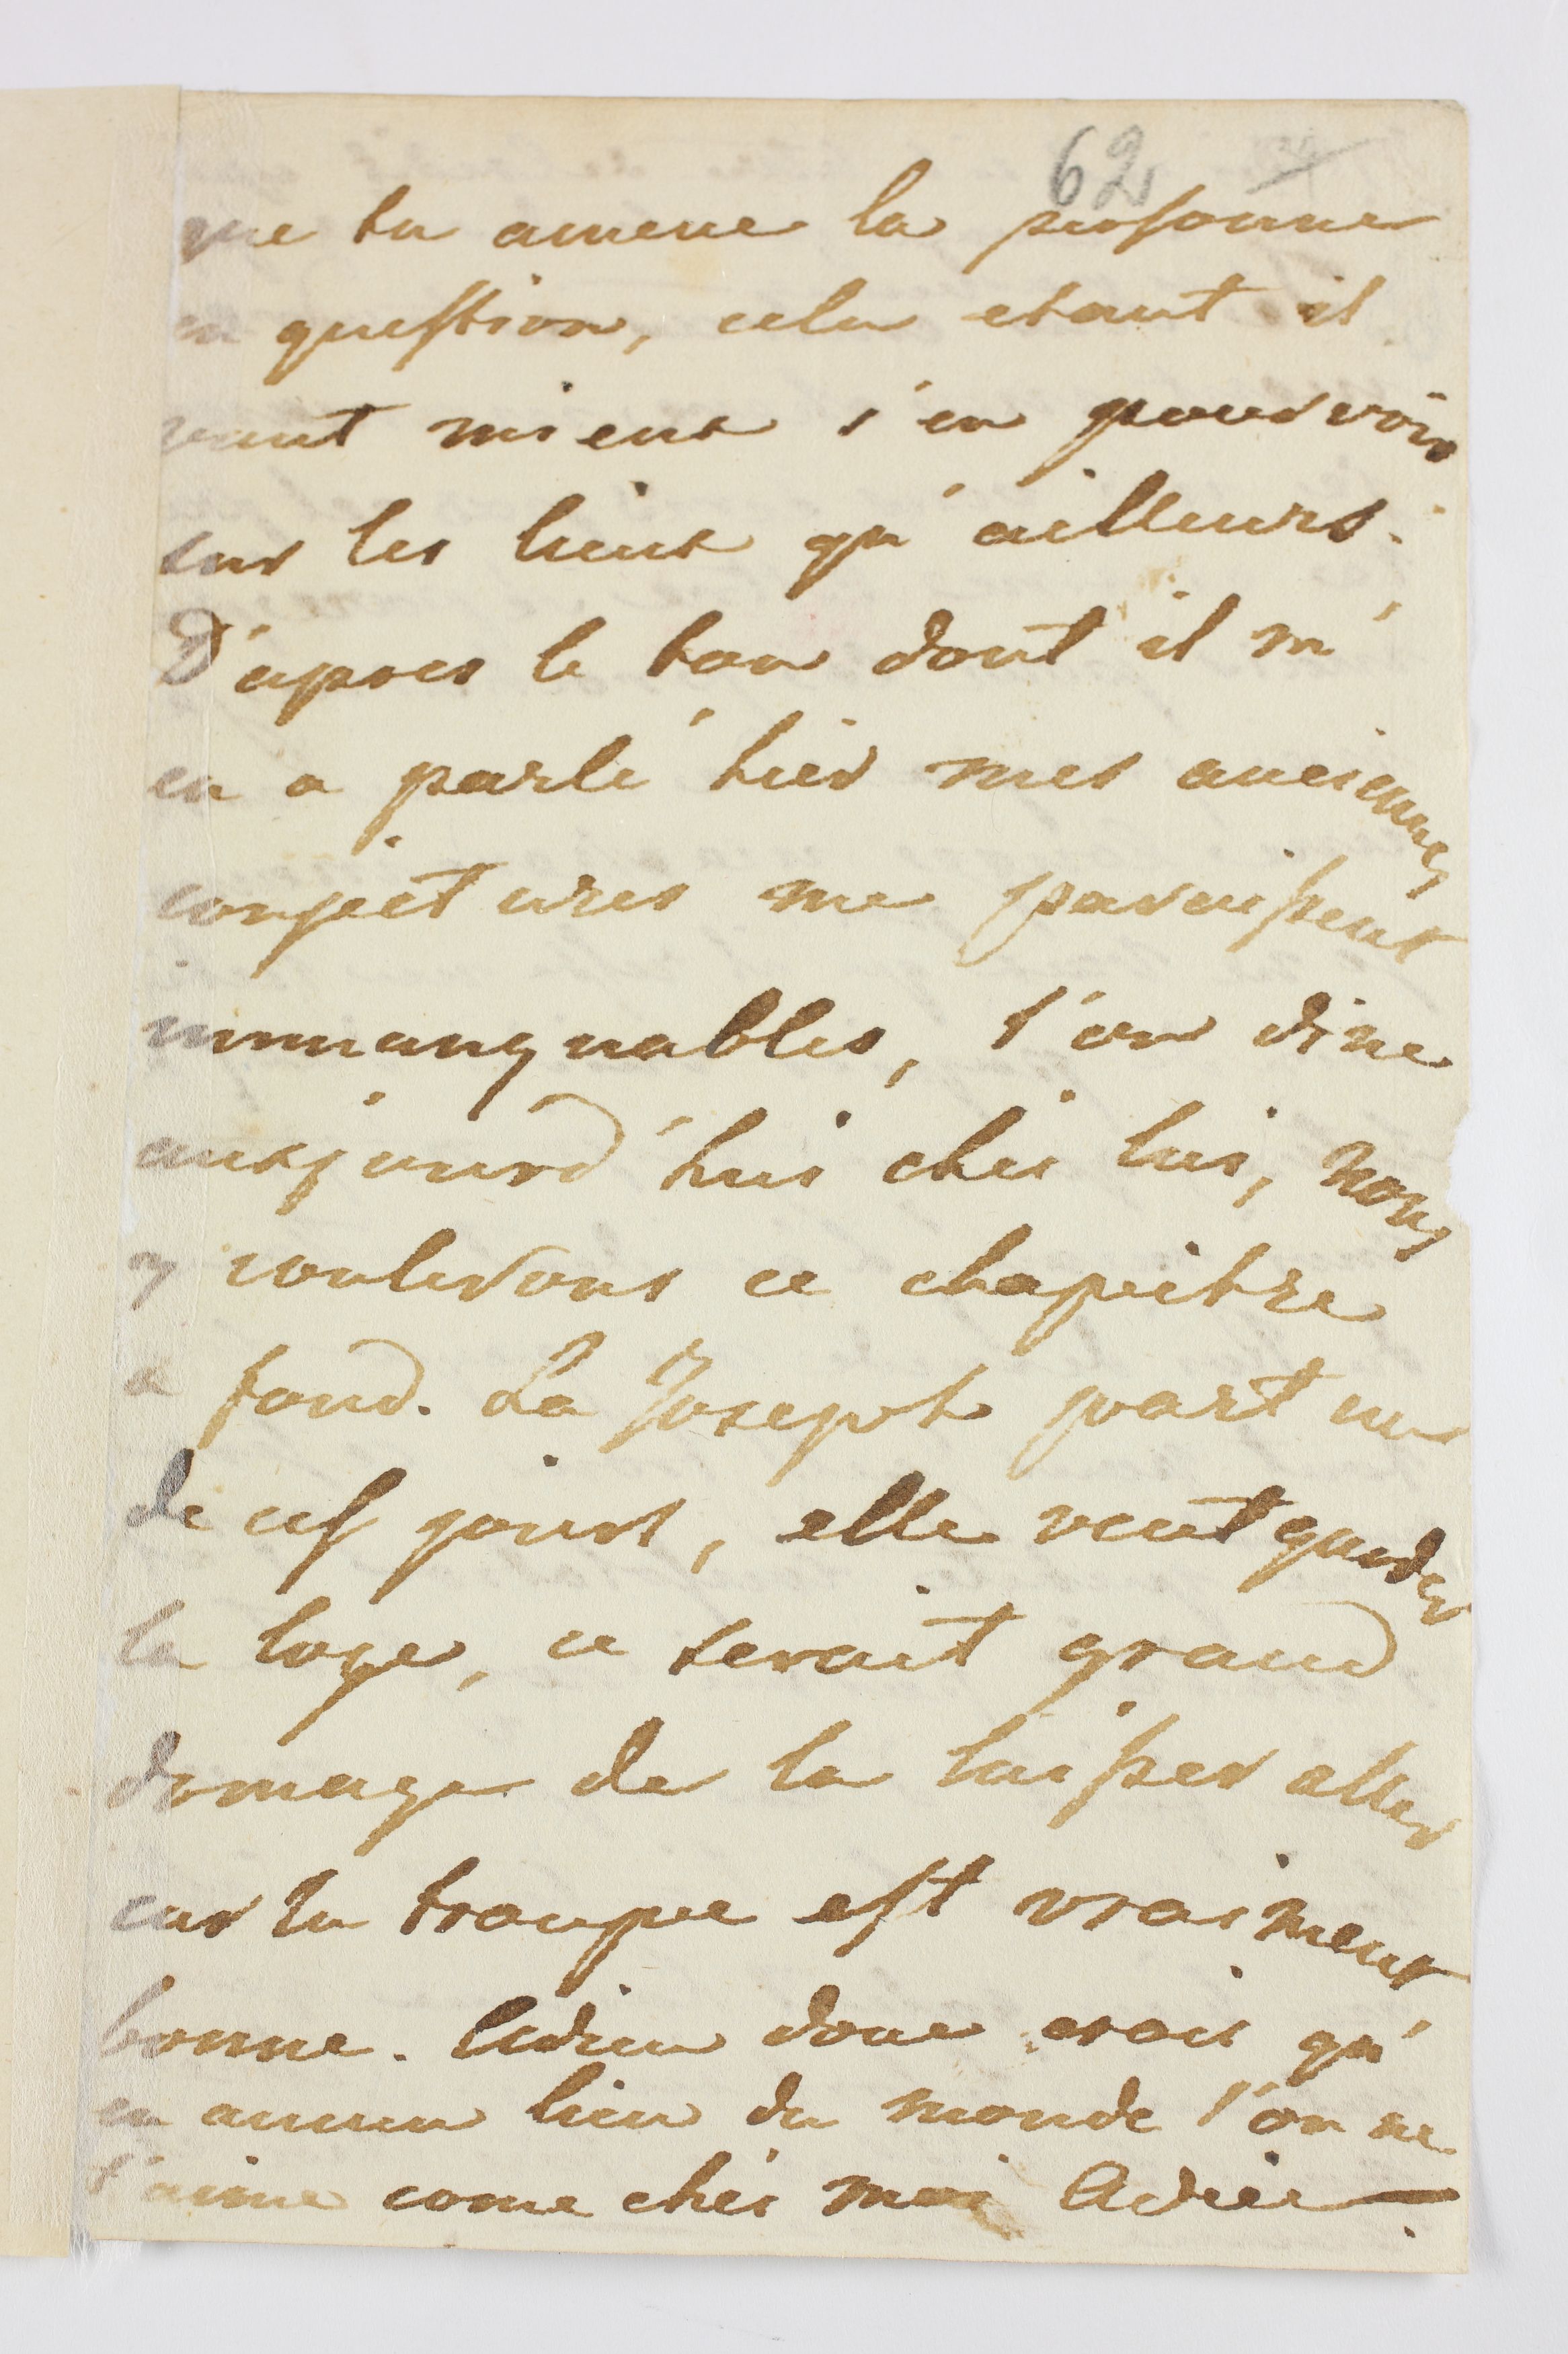 62
que tu amene la personne
en question, cela etant il
vaut mieux s'en pourvoir
sur les lieux qu'ailleurs.
D'apres le ton dont il m'
en a parlé hier mes anciennes
conjectures me paraissent
immanquables, l'on dine
aux jourd'hui chés lui, nous
y coulerons ce chapeitre
a fond. La Joseph part un
de ces jours, elle veut garder
la loge, ce serait grand
domage de la laisser aller
car la troupe est vraiment
bonne. Adieu donc crois qu'
en aucun lieu du monde l'on ne
t'aime come chés moi Adieu